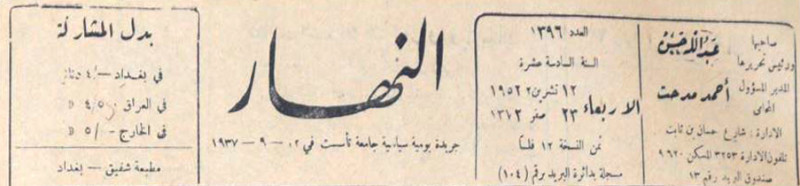 صاحبها
ورئيس تحريرها
عبد الله حسن
المدير المسؤول
المحامي
أحمد مدحت
الادارة : شارع حسان بن ثابت
تلفون الادارة ٣٢٥٣ المسكن ٩٦٢٠
صندوق البريد رقم ١٣
العدد ١٣٩٦
السنة السادسة عشرة
الاربعاء
١٢ تشرين٢ ١٩٥٢
٢٣ صفر ١٣٧٢
ثمن النسخة ١٢ فلساً
مسجلة بدائرة البريد برقم (١٠٤)
النهار
جريدة يومية سياسية جامعة تأسست في ٢٠ – ٩ – ١٩٣٧
بدل المشاركة
في بغداد — ٤/
في العراق
في الخارج — ٥/
مطبعة شفيق – بغداد